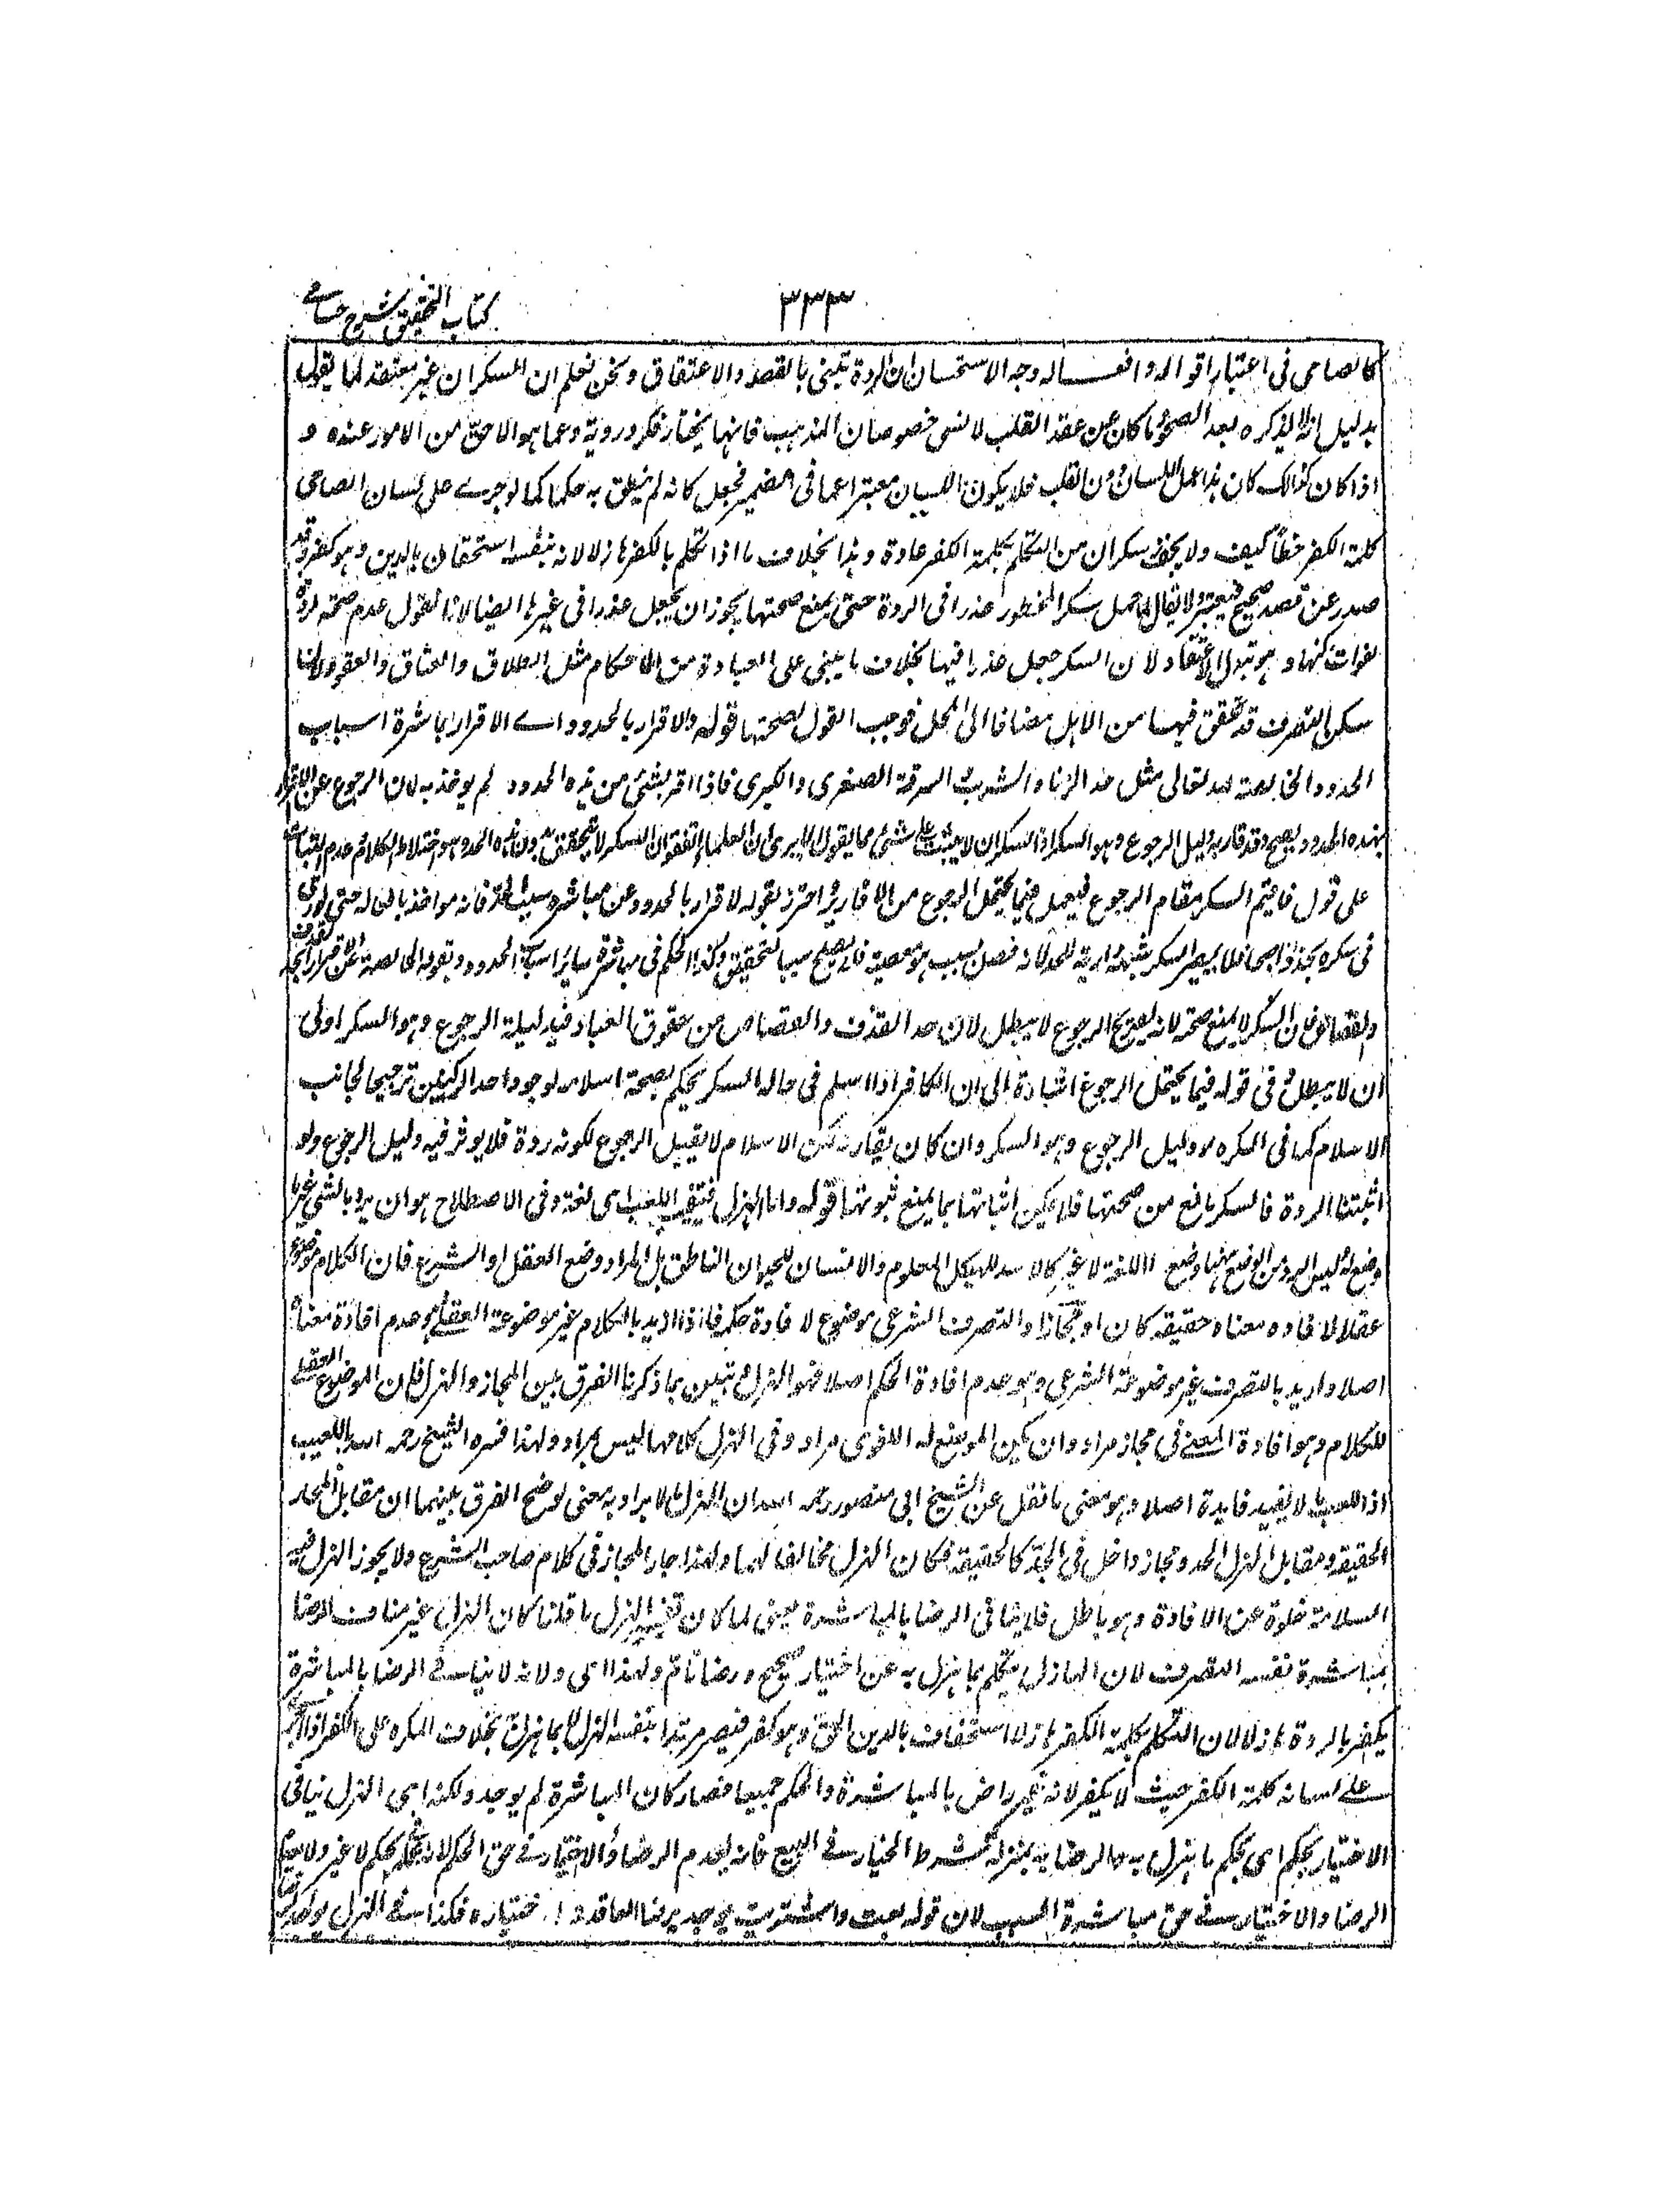 كتاب التحقيق شرح حسامي
٣٣٣
كالصاحى فى اعتبار اقواله وافعاله وجه الاستحسان ان الردة تبتنى بالقصد والاعتقاد ونحن نعلم ان السكران غير معتقد لما يقول
بدليل انه لا يذكره بعد الصحو وما كان عن عقد القلب لا ينسى خصوصا المذاهب فانها يختار فكر وروية وعما هو الاحق من الامور عنده و
اذا كان كذلك كان هذا عمل اللسان دون القلب فلا يكون اللسان معبرا عما فى الضمير فجعل كانه لم ينطق به حكما كما لو جرى على لسان الصاحى
كلمة الكفر خطأ كيف ولا ينجو سكران من التكلم بكلمة الكفر عادة وهذا بخلاف ما اذا تكلم بالكفر هازلا لانه بنفسه استخفاف بالدين وهو كفر وقد
صدر عن قصد صحيح فيعتبر ولا يقال لما جعل سكر المحظور عذرا فى الردة حتى يمنع صحتها يجوز ان يجعل عذرا فى غيرها ايضا لانا نقول عدم صحة الردة
لفوات ركنها وهو تبدل الاعتقاد لا ان السكر جعل عذرا فيها بخلاف ما يبتنى على العبادة من الاحكام مثل الطلاق والعتاق والعقود لان
ركن التصرف قد تحقق فيها من الاهل مضافا الى المحل فوجب القول بصحتها قوله والاقرار بالحدود اے الاقرار بمباشرة اسباب
الحدود الخالصة لله تعالى مثل حد الزنا والشرب والسرقة الصغرى والكبرى فاذا اقر بشئ من هذه الحدود لم يؤخذ به لان الرجوع عن الاقرار
بهذه الحدود يصح وقد قارنه دليل الرجوع وهو السكر اذ السكران لا يثبت على شئ مما يقول الا يرى ان العلماء اتفقوا ان السكر لا يتحقق بدون هذه الحد وهو اختلاط الكلام وعدم الثبات
على قول فاقيم السكر مقام الرجوع فيعمل فيما يحتمل الرجوع من الاقارير واحترز بقوله الاقرار بالحدود عن مباشرة سبب الحد فانه مواخذ بافعاله حتى لو زنى
فى سكره يحد اذا صحا فلا يصير السكر شبهة دارئة للحد لانه حصل بسبب هو معصية فلا يصلح سببا للتخفيف وكذا الحكم فى مباشرة سائر اسباب الحدود وبقوله الخالصة عن الاقرار بحد القذف
والقصاص فان السكر لا يمنع صحته لانه بصريح الرجوع لا يبطل لان حد القذف والقصاص من حقوق العباد فبدليل الرجوع وهو السكر اولى
ان لا يبطل وفى قوله فيما يحتمل الرجوع اشارة الى ان الكافر اذا اسلم فى حالة السكر يحكم بصحة اسلامه لوجود احد الركنين ترجيحا لجانب
الاسلام كما فى المكره ودليل الرجوع وهو السكر وان كان يقارنه لكن الاسلام لا يقبل الرجوع لكونه ردة فلا يوثر فيه دليل الرجوع ولو
اثبتنا الردة فالسكر مانع من صحتها فلا يمكن اثباتها بما يمنع ثبوتها قوله واما الهزل فتفسيره اللعب اى لغة وفى الاصطلاح هو ان يراد بالشئ غير ما
وضع له ليس المراد من الوضع ههنا وضع اللغة لا غير كالاسد للهيكل المعلوم والانسان للحيوان الناطق بل المراد وضع العقل او الشرع فان الكلام موضوع
عقلا لافادة معناه حقيقة كان او مجازا والتصرف الشرعى موضوع لافادة حكمه فاذا اريد بالكلام غير موضوعه العقلى وهو عدم افادة معناه
اصلا واريد بالتصرف غير موضوعه الشرعى وهو عدم افادة الحكم اصلا فهو الهزل وتبين بما ذكرنا الفرق بين المجاز والهزل فان الموضوع العقلے
للكلام وهو افادة المعنے فى مجاز مراد وان لم يكن الموضوع له اللغوى مراد وفى الهزل كلاهما ليس بمراد ولهذا فسره الشيخ رحمه الله باللعب
اذ اللعب ما لا يفيد فايدة اصلا وهو معنى ما نقل عن الشيخ ابى منصور رحمه الله ان الهزل ما لا يراد به معنى يوضح الفرق بينهما ان مقابل المجاز
الحقيقة ومقابل الهزل الجد والمجاز داخل فى الجد كالحقيقة فكان الهزل مخالفا لهما ولهذا جاز المجاز فى كلام صاحب الشرع ولا يجوز الهزل فيه
لاستلزامه خلوه عن الافادة وهو باطل فلا ينافى الرضا بالمباشرة يعنى لما كان تفسير الهزل ما قلنا كان الهزل غير مناف الرضا
بمباشرة نفس التصرف لان الهازل يتكلم بما يهزل به عن اختيار صحيح ورضا تام ولهذا اى ولانه لا ينافے الرضا بالمباشرة
يكفر بالردة هازلا لان التكلم بكلمة الكفر هازلا استخفاف بالدين الحق وهو كفر فيصير مرتدا بنفس الهزل لا بما هزل به بخلاف المكره على الكفر اذا اجرى
على لسانه كلمة الكفر حيث لا يكفر لانه غير راض بالمباشرة والحكم جميعا فصار كان المباشرة لم يوجد ولكنه اى الهزل ينافى
الاختيار بحكم اى بحكم ما يهزل به والرضا به بمنزلة شرط الخيار فے البيع فانه يعدم الرضا والاختيار فے حق الحكم لا غير ولا يعدم
الرضا والاختيار فے حق مباشرة السبب لان قوله بعت واشتريت يوجد برضا العاقد واختياره فكذا فے الهزل يوجد